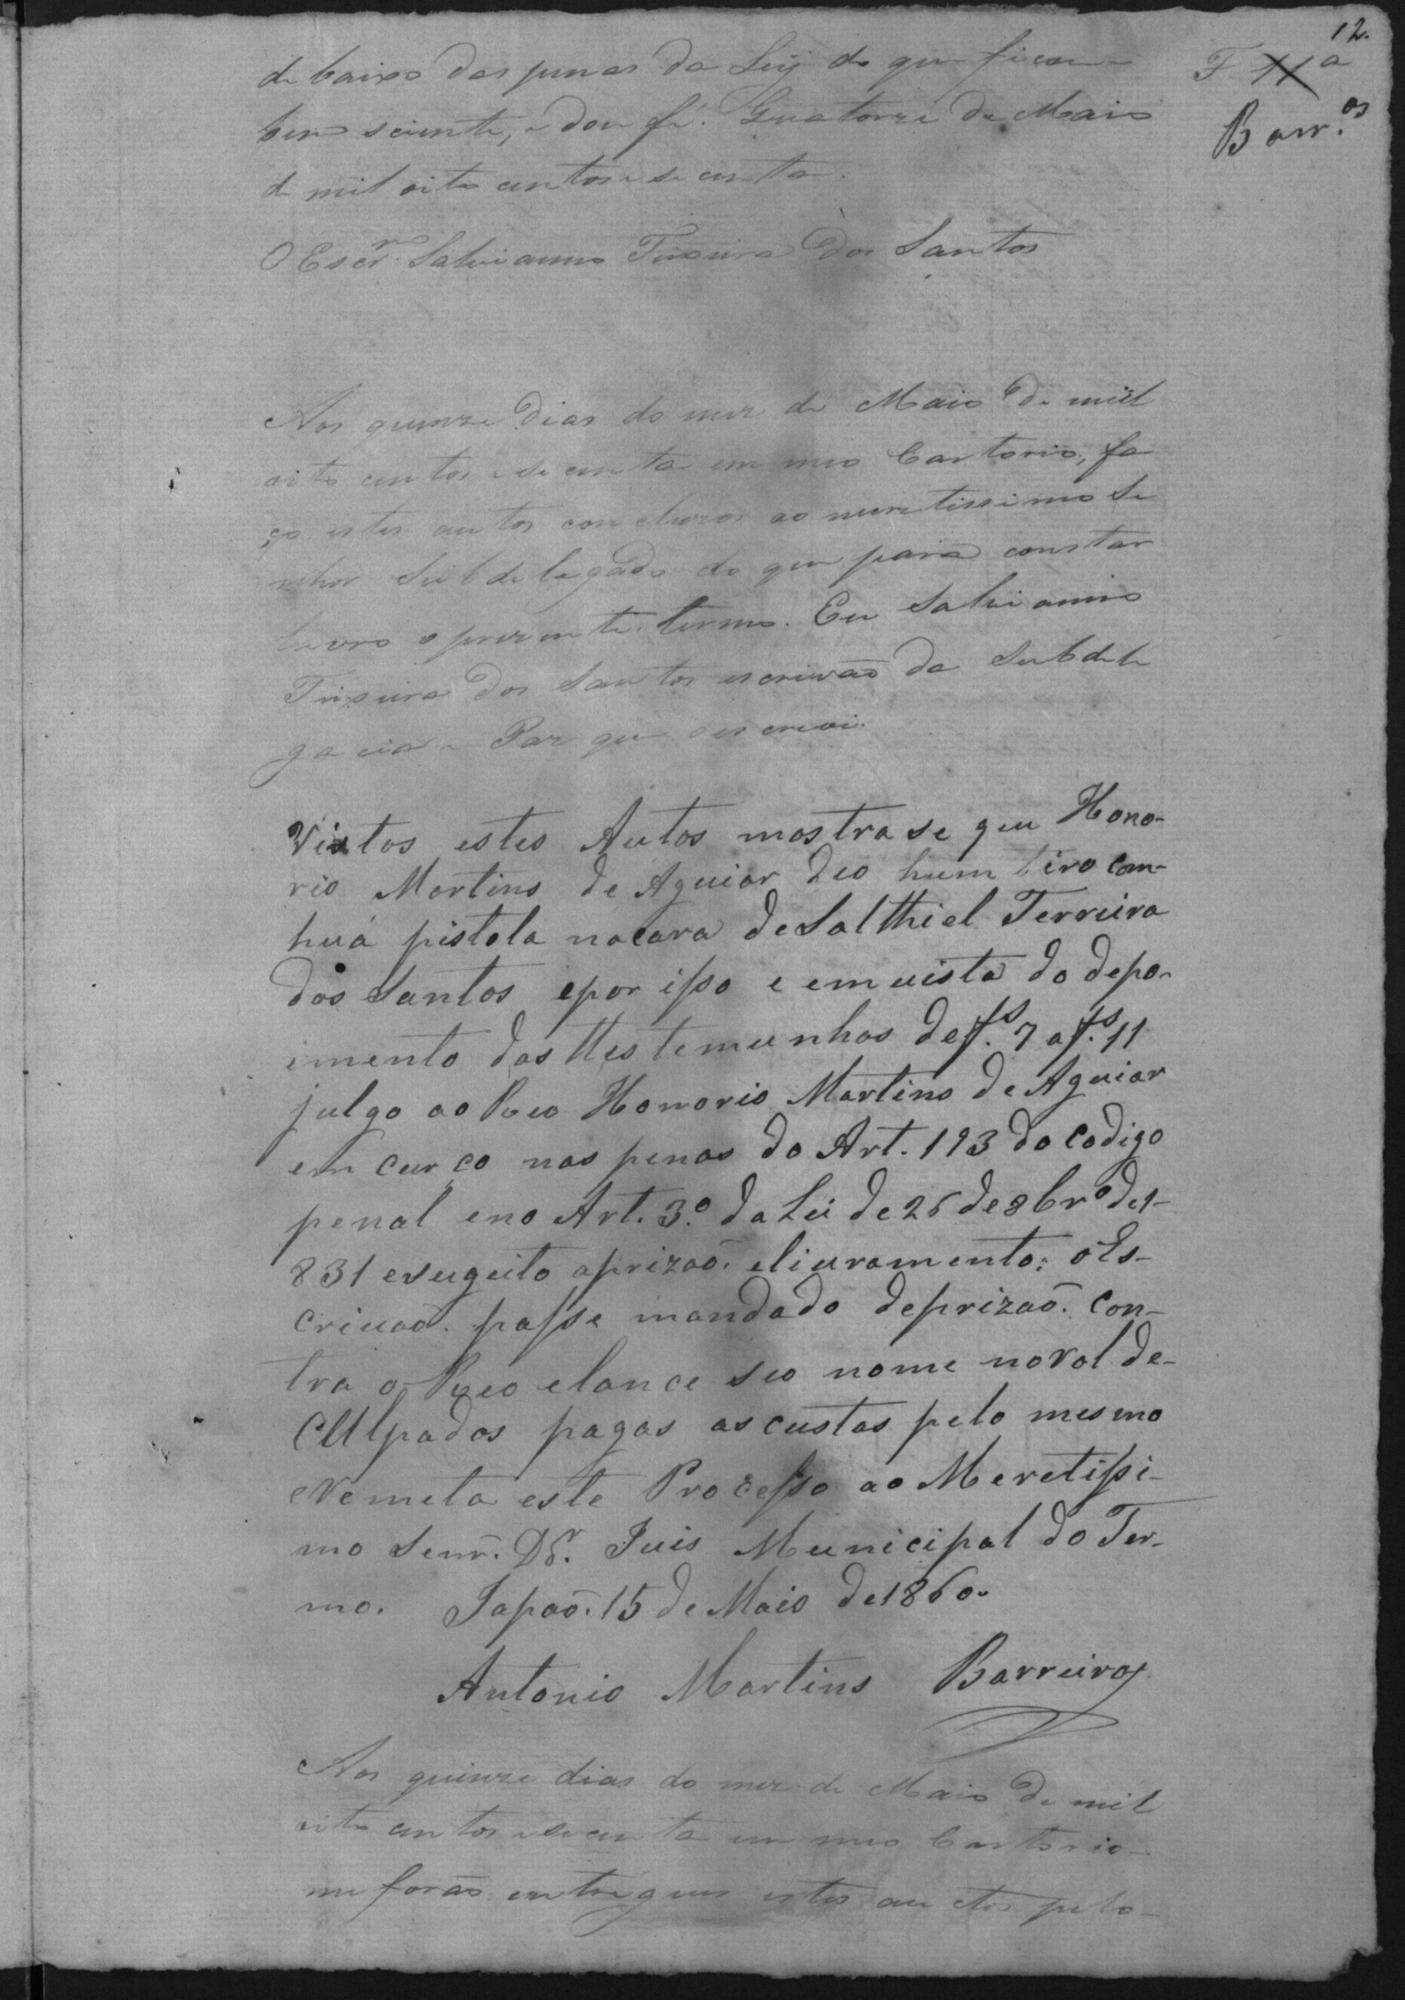 12.
F 11 a
Barr.os
de baixo das penas da Leij do que ficou
bem sciente, e dou fé. Quatorze de Maio
de mil oito centos e secenta.
O Escr.m Salvianno Teixeira dos Santos
Aos quinze dias do mez de Maio de mil
oito centos e secenta em meo Cartorio, fa
ço estes autos concluzos ao meretissimo Se
nhor Subdelegado do que para constar
lavro o prezente termo. Eu Salvianno
Teixeira dos Santos escrivão da Subdele
gacia e Paz que o escrevi.
Vistos estes Autos mostra se que Hono-
rio Martins de Aguiar deo hum tiro com
huá pistola nacara de Salthiel Ferreira
dos Santos epor isso e em vista do depo-
imento das ttestemunhas def.s 7 a f.s 11
julgo ao Reo Honorio Martins de Aguiar
em curço nas penas do Art. 193 do codigo
penal eno Art. 3.º da Lei de 26 de 8br.o de 1-
831 esugeito aprizaõ. elivramento: oEs-
crivaõ. passe mandado deprizaõ. Con-
tra o Reo elance seo nome no Rol de-
Culpados pagas as custas pelo mesmo
eRemeta este Processo ao Meretissi-
mo Senr. Dr. Juis Municipal do Ter-
mo. Japaõ. 15 de Maio de 1860.
Antonio Martins Barreiros
Aos quinze dias do mez de Maio de mil
oito centos e secenta em meo Cartorio
me foraõ entregues estes autos pelo